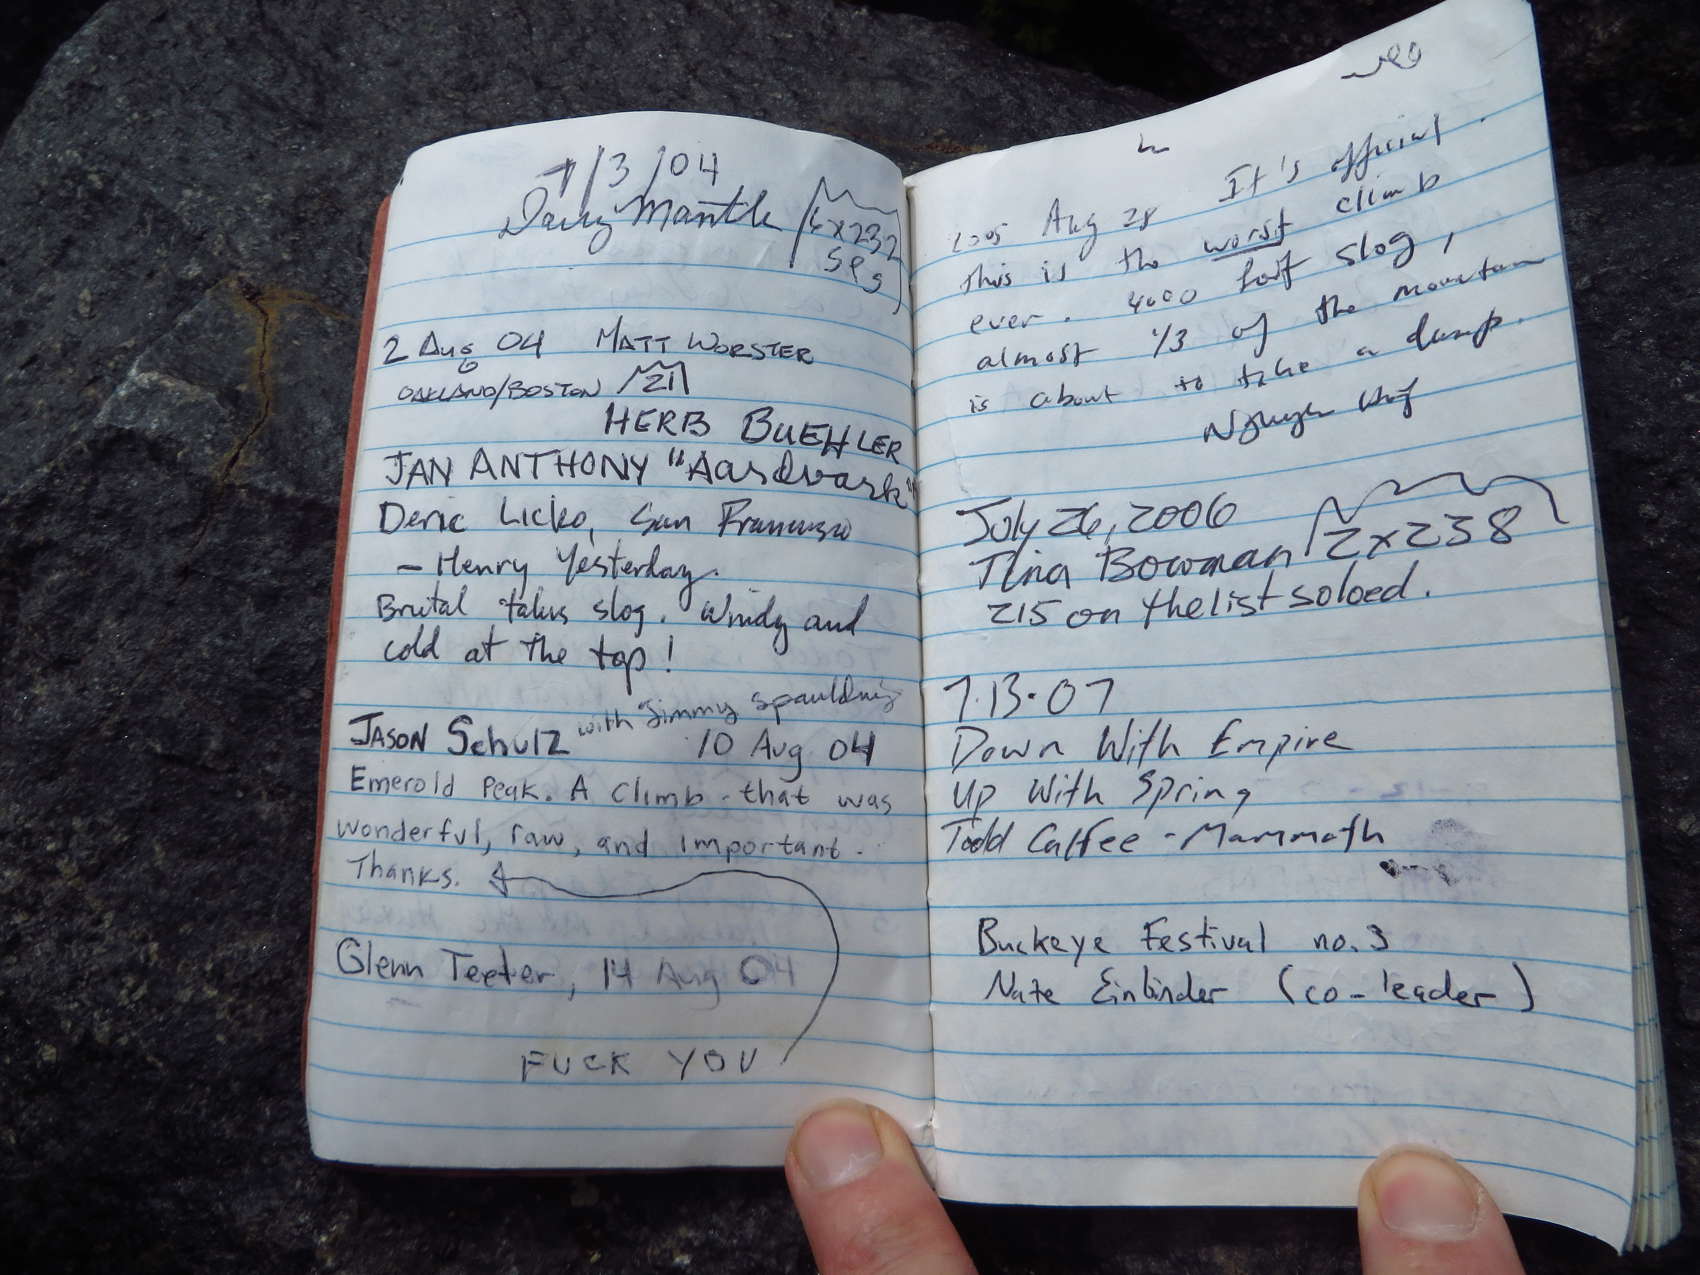 7/3/04
Doug Mantle 6x232
SPS
2 Aug 04 MATT WORSTER
OAKLAND/BOSTON 21
HERB BUEHLER
JAN ANTHONY "Aardvark"
Deric Licko, San Francisco
- Henry Yesterday.
Brutal talus slog. Windy and
cold at the top!
with Jimmy Spaulding
JASON SchulZ 10 Aug 04
Emerold Peak. A climb that was
wonderful, raw, and important.
Thanks.
Glenn Teeter, 14 Aug 04
FUCK YOU
2005 Aug 28 It's official.
this is the worst climb
ever. 4000 foot slog,
almost 1/3 of the mountain
is about to take a dump.
July 26, 2006
Tina Bowman 2x238
215 on the list soloed.
7.13.07
Down With Empire
Up With Spring
Todd Calfee - Mammoth
Buckeye Festival no. 3
Nate Einbinder (co-leader)